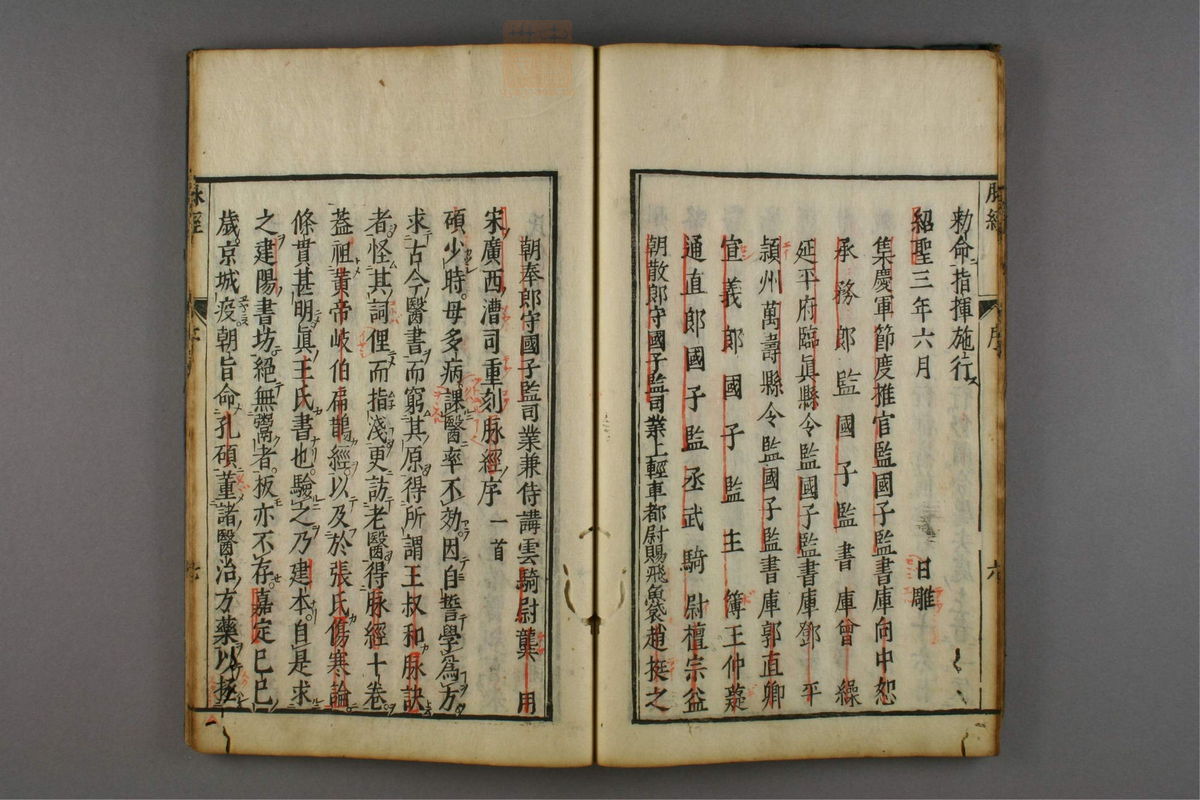 勑命指揮施行
紹聖三年六月 日雕
集慶軍節度推官監國子監書庫向中恕
承務郎監國子監書庫曾繰
延平府臨眞縣令監國子監書庫鄧平
潁州萬壽縣令監國子監書庫郭直卿
宣義郎國子監主簿王仲薿
通直郎國子監丞武騎尉檀宗益
朝散郎守國子監司業上輕車都尉賜飛魚袋趙挺之
朝奉郎守國子監司業兼侍講雲騎尉龔用
宋廣西漕司重刻脉經序一首
碩少時母多病課醫率不効因自誓學爲方
求古今醫書而窮其原得所謂王叔和脉訣
者怪其詞俚而指淺更訪老醫得脉經十卷
葢祖黃帝岐伯扁鵲經以及於張氏傷寒論
條貫甚明眞王氏書也驗之乃建本自是求
之建陽書坊絕無鬻者板亦不存嘉定己巳
歲京城疫朝旨命孔碩董諸醫治方藥以拯
脉經
序
六